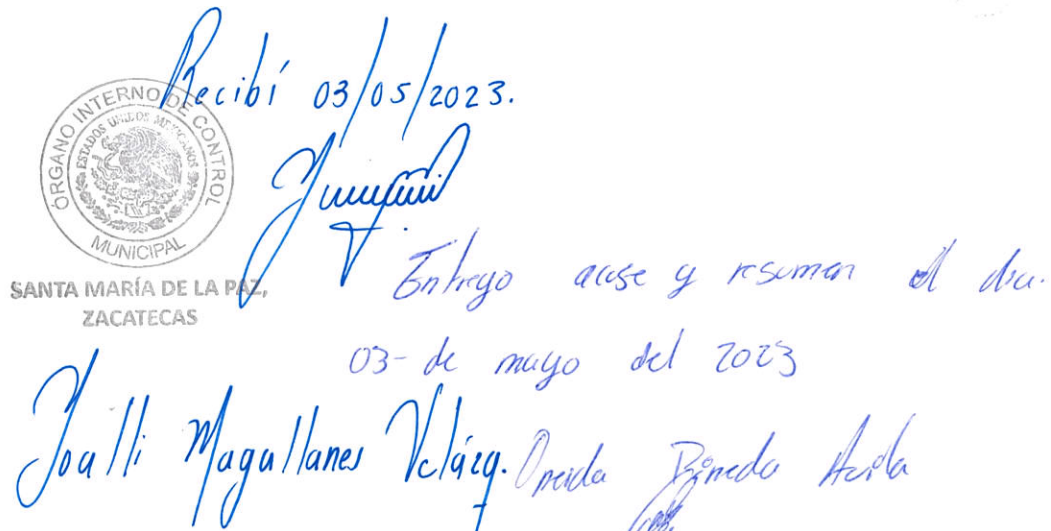 Recibí 03/05/2023.
ÓRGANO INTERNO DE CONTROL
ESTADOS UNIDOS MEXICANOS
MUNICIPAL
SANTA MARÍA DE LA PAZ,
ZACATECAS
Entrego acuse y resumen el dia.
03- de mayo del 2023
Yoalli Magallanes Velázq.
Oneida Pineda Avila